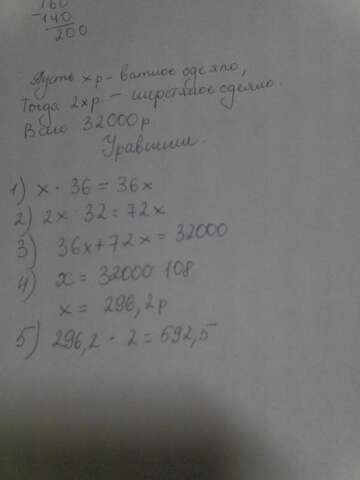 160
- 140
200
Пусть x р - ватное одеяло,
Тогда 2x р - шерстяное одеяло.
Всего 32000 р
Уравнение.
1) x · 36 = 36x
2) 2x · 32 = 72x
3) 36x + 72x = 32000
4) x = 32000 108
x = 296,2 р
5) 296,2 · 2 = 592,5